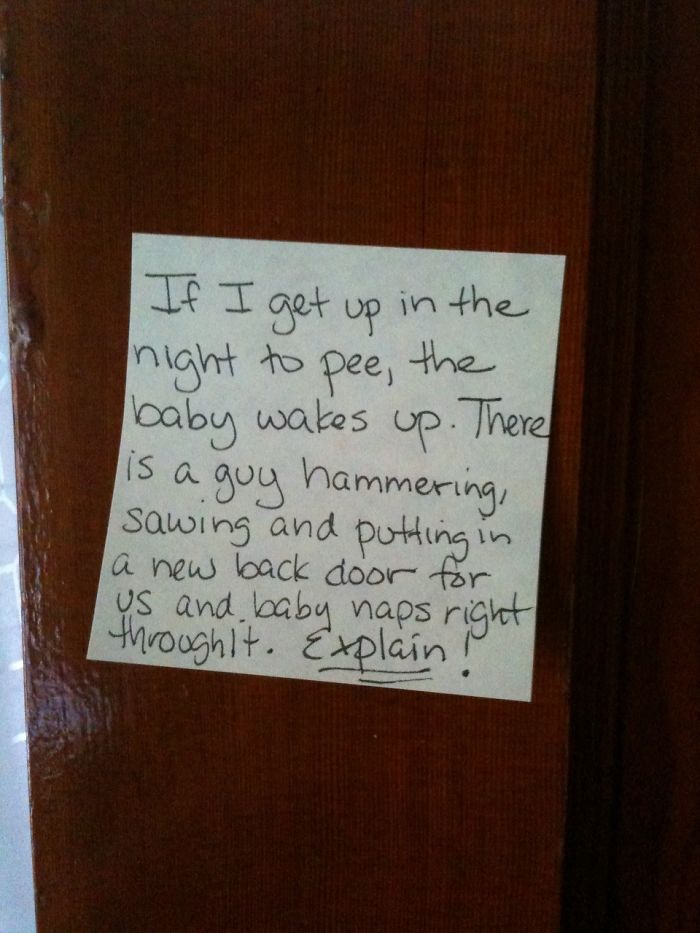 If I get up in the
night to pee, the
baby wakes up. There
is a guy hammering,
sawing and putting in
a new back door for
us and baby naps right
through It. Explain!